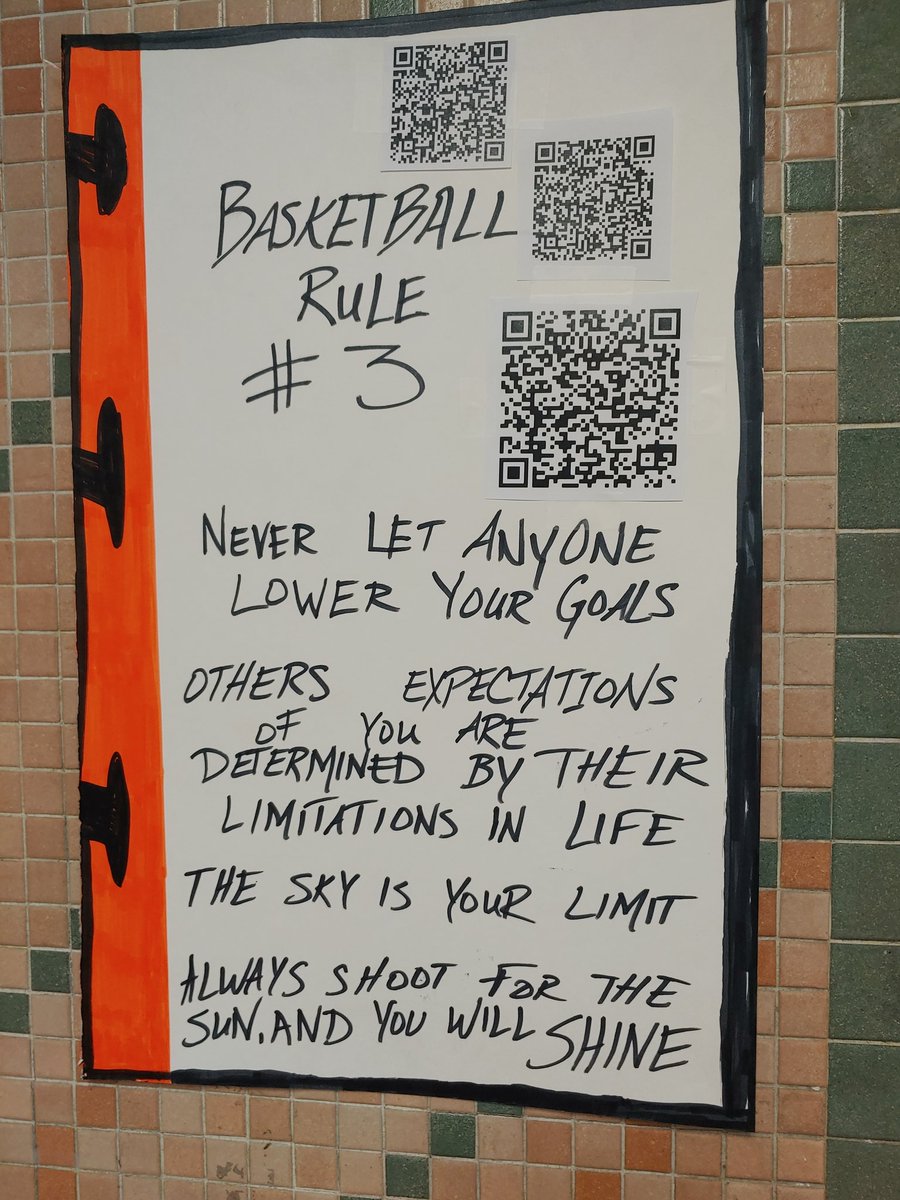 BASKETBALL
RULE
# 3
NEVER LET ANYONE
LOWER YOUR GOALS
OTHERS EXPECTATIONS
OF YOU ARE
DETERMINED BY THEIR
LIMITATIONS IN LIFE
THE SKY IS YOUR LIMIT
ALWAYS SHOOT FOR THE
SUN, AND YOU WILL SHINE